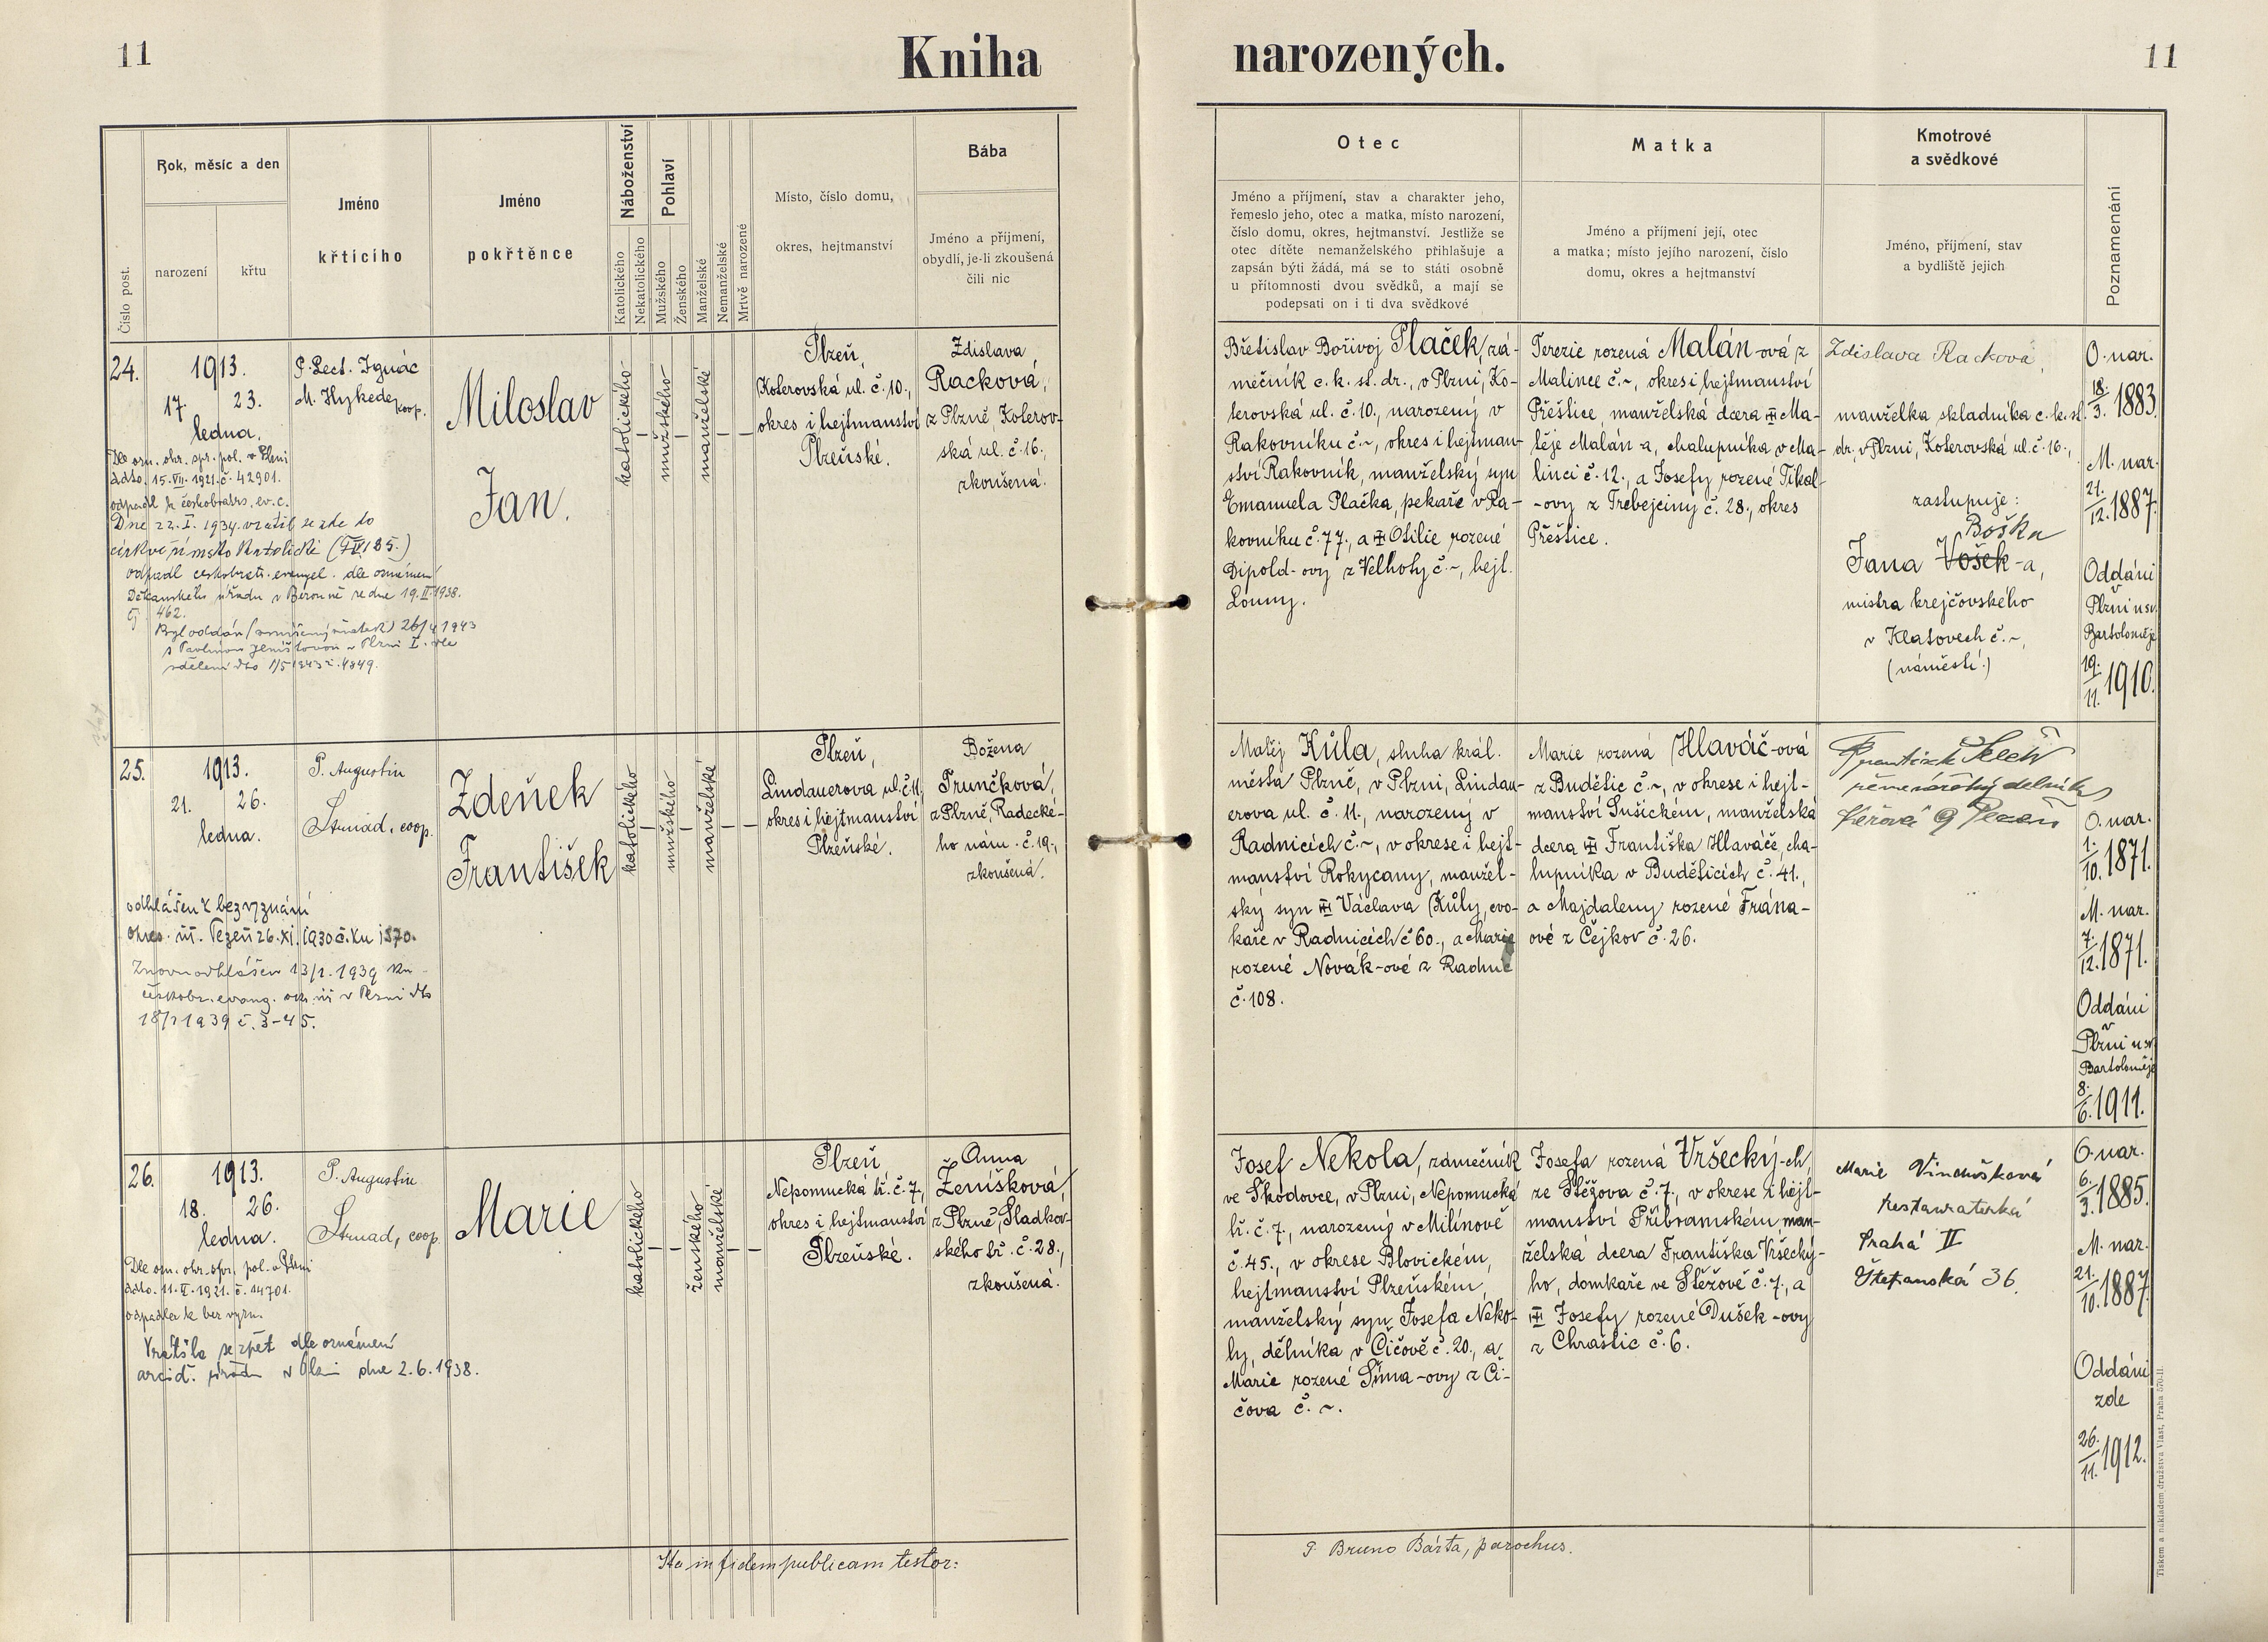 11
Kniha
narozených.
11
Číslo post.
Rok, měsíc a den
narození
křtu
Jméno
křtícího
Jméno
pokřtěnce
Náboženství
Katolického
Nekatolického
Pohlaví
Mužského
Ženského
Manželské
Nemanželské
Mrtvě narozené
Místo, číslo domu,
okres, hejtmanství
Bába
Jméno a příjmení,
obydlí, je-li zkoušená
čili nic
Otec
Jméno a příjmení, stav a charakter jeho,
řemeslo jeho, otec a matka, místo narození,
číslo domu, okres, hejtmanství. Jestliže se
otec dítěte nemanželského přihlašuje a
zapsán býti žádá, má se to státi osobně
u přítomnosti dvou svědků, a mají se
podepsati on i ti dva svědkové
Matka
Jméno a příjmení její, otec
a matka; místo jejího narození, číslo
domu, okres a hejtmanství
Kmotrové
a svědkové
Jméno, příjmení, stav
a bydliště jejich
Poznamenání
24.
1913.
17. 23.
ledna.
Dle ozn. okr. spr. pol. v Plzni
ddto. 15. VII. 1921. č. 42901.
odpadl k českobratrs. ev. c.
Dne 22. I. 1934 vrátil se zde do
církve římsko katolické
odpadl českobratr. evangel. dle oznámení
Děkanského úřadu v Berouně ze dne 19. II. 1938.
čj. 462.
Byl oddán 26/4 1943
v Plzni I. dle
sdělení dto 1/5 1943 č. 4849.
P. Lect. Ignác
M. Hykede, koop.
Miloslav
Jan.
katolického
mužského
manželské
Plzeň,
Koterovská ul. č. 10.,
okres i hejtmanství
Plzeňské.
Zdislava
Racková,
z Plzně, Koterov-
ská ul. č. 16.,
zkoušená.
Břetislav Bořivoj Plaček, zá-
mečník c. k. st. dr., v Plzni, Ko-
terovská ul. č. 10., narozený v
Rakovníku č. ~, okres i hejtman-
ství Rakovník, manželský syn
Emanuela Plačka, pekaře v Ra-
kovníku č. 77., a Otilie rozené
Dipold-ovy z Velhoty č. ~, hejt.
Louny.
Terezie rozená Malán-ová z
Malince č. ~, okres i hejtmanství
Přeštice, manželská dcera Ma-
těje Malán-a, chalupníka v Ma-
linci č. 12., a Josefy rozené Tikal-
-ovy z Třebejciny č. 28., okres
Přeštice.
Zdislava Racková,
manželka skladníka c. k. st.
dr., v Plzni, Koterovská ul. č. 16.,
zastupuje:
Boška
Jana Vošek-a,
mistra krejčovského
v Klatovech č. ~,
(náměstí.)
O. nar.
18./3. 1883.
M. nar.
21./12. 1887.
Oddáni
v
Plzni u sv.
Bartoloměje
19./11. 1910.
25.
1913.
21. 26.
ledna.
odhlášen k bezvyznání
26. XI. 1930 č. ku 1370.
Znovu odhlášen 13/1. 1939 ku
českobr. evang. v Plzni dto
18/1 1939 č. 3-45.
P. Augustin
Strnad, coop.
Zdeňek
František
katolického
mužského
manželské
Plzeň,
Lindauerova ul. č. 11.,
okres i hejtmanství
Plzeňské.
Božena
Trunčková,
z Plzně, Radecké-
ho nám. č. 19.,
zkoušená.
Matěj Kůla, sluha král.
města Plzně, v Plzni, Lindau-
erova ul. č. 11., narozený v
Radnicích č. ~, v okrese i hejt-
manství Rokycany, manžel-
ský syn Václava Kůly, cvo-
kaře v Radnicích č. 60., a Marie
rozené Novák-ové z Radnic
č. 108.
Marie rozená Hlaváč-ová
z Budětic č. ~, v okrese i hejt-
manství Sušickém, manželská
dcera Františka Hlaváče, cha-
lupníka v Budětících č. 41.,
a Majdaleny rozené Frána-
ové z Čejkov č. 26.
František
dělník
9 Plzeň
O. nar.
1./10. 1871.
M. nar.
7./12. 1871.
Oddáni
v
Plzni u sv.
Bartoloměje
8./6. 1911.
26.
1913.
18. 26.
ledna.
Dle ozn. okr. spr. pol. v Plzni
ddto. 11. II. 1921. č. 14701.
odpadla k bez vyzn.
Vrátila se zpět dle oznámení
arcid. úřadu v Plzni dne 2. 6. 1938.
P. Augustin
Strnad, coop.
Marie
katolického
ženského
manželské
Plzeň
Nepomucká tř. č. 7.,
okres i hejtmanství
Plzeňské.
Anna
Ženíšková,
z Plzně, Sladkov-
ského tř. č. 28.,
zkoušená.
Josef Nekola, zámečník
ve Škodovce, v Plzni, Nepomucká
tř. č. 7., narozený v Milínově
č. 45., v okrese Blovickém,
hejtmanství Plzeňském,
manželský syn Josefa Neko-
ly, dělníka v Čičově č. 20., a
Marie rozené Šíma-ovy z Či-
čova č. ~.
Josefa rozená Vršecký-ch,
ze Stěžova č. 7., v okrese i hejt-
manství Příbramském, man-
želská dcera Františka Vršecký-
ho, domkaře ve Stěžově č. 7., a
Josefy rozené Dušek-ovy
z Chraštic č. 6.
Marie Vindušková
restauratérka
Praha II
Štěpanská 36.
O. nar.
6./3. 1885.
M. nar.
21./10. 1887.
Oddáni
zde
26./11. 1912.
Ita in fidem publicam testor:
P. Bruno Bárta, parochus.
Tiskem a nákladem družstva Vlast, Praha 570-II.